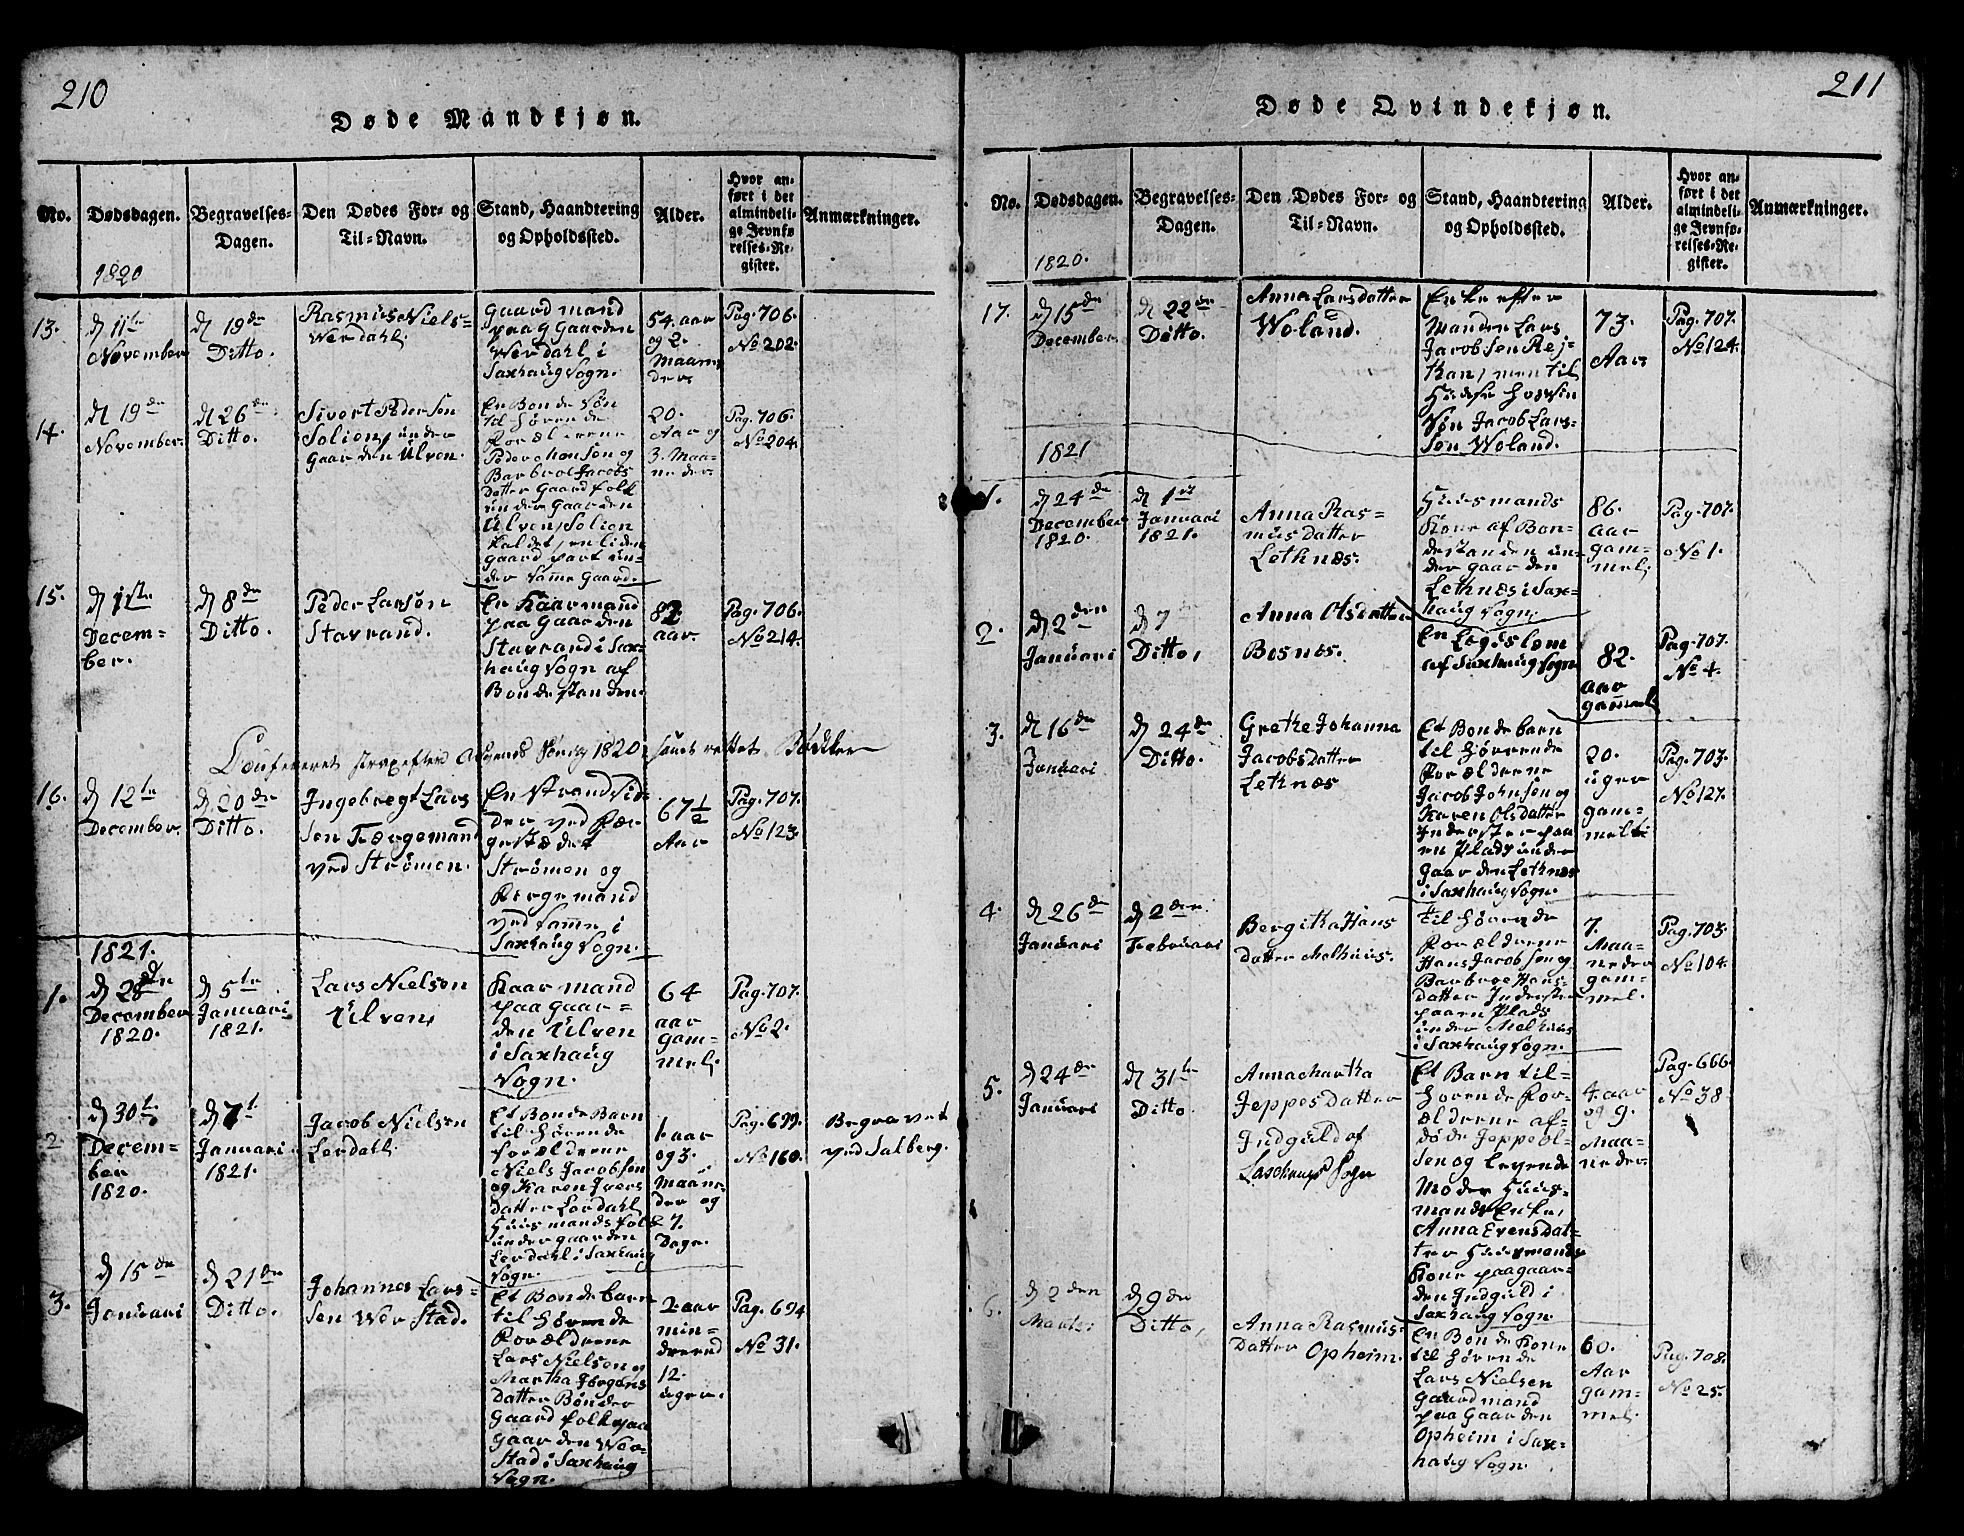 210
Døde Mandkjøn.
No.
Dødsdagen.
1820
Begravelses-
Dagen.
Den Dødes For- og
Til-Navn.
Stand, Haandtering
og Opholdssted.
Alder.
Hvor an-
ført i det
almindeli-
ge Jevnfø-
relses-Re-
gister.
Anmærkninger.
13.
d 11te
November
d 19de
Ditto.
Rasmus Niels-
Werdahl.
Gaardmand
paa Gaarden
Werdahl i
Saxhaug Sogn.
54. aar
og 2.
Maane-
der
Pag. 706.
No 202.
14.
d 19de
November.
d 26de
Ditto.
Sivert Pedersen
Solien, under
Gaarden Ulven.
En Bonde Søn
tilhørende
Forældrene
Peder Hansen og
Barbro Jacobs
Datter Gaardfolk
under Gaarden
Ulven, Solien
kaldet, en liden
gaard part un-
der samme Gaard.
20.
Aar og
3. Maa-
neder
Pag. 706.
No 204.
15.
d 1ste
Decem-
ber.
d 8de
Ditto.
Peder Larsen
Stavrand.
En Kaarmand
paa Gaarden
Stavrand i Sax-
haug Sogn af
Bondestanden.
82
aar.
Pag. 706.
No 214.
1820
16.
d 12te
December.
d 20de
Ditto.
Ingebregt Lars
sen Færgemand
ved Strømen.
En Strand Sid-
der ved Fær-
gestædet
Strømen og
Færgemand
ved samme i
Saxhaug Sogn.
67 1/2
Aar
Pag. 707.
No 123.
1821.
1.
d 28de
December
1820.
d 5te
Januari
1821.
Lars Nielsen
Ulven,
Kaarmand
paa Gaar-
den Ulven
i Saxhaug
Sogn.
64
aar
gam-
mel.
Pag. 707.
No 2.
2.
d 30te
Decem-
ber
1820.
d 7t
Januari
1821.
Jacob Nielsen
Lerdahl.
Et Bonde Barn
tilhørende
forældrene
Niels Jacobsen
og Karen Ivers
datter Lerdahl
Huusmandsfolk
under gaarden
Lerdahl i Saxhaug
Sogn.
1. aar
og 3.
Maane-
der og
7.
Dage.
Pag. 699.
No 160.
Begravet
ved Salberg.
3.
d 15de
Januari
d 21de
Ditto.
Johannes Lars-
sen Werstad.
Et Bondebarn
tilhørende
Forældrene
Lars Nielsen og
Martha Jørgens
Datter Bønder
Gaardfolk paa
Gaarden Wer-
stad i Saxhaug
Sogn.
2. aar
min-
drend
12.
uger.
Pag. 694
No 31.
211
Døde Qvindekjøn.
No.
Dødsdagen.
1820.
Begravelses-
Dagen.
Den Dødes For- og
Til-Navn.
Stand, Haandtering
og Opholdssted.
Alder.
Hvor an-
ført i det
almindeli-
ge Jevnfø-
relses-Re-
gister.
Anmærkninger.
17.
d 15de
December.
d 22de
Ditto.
Anna Larsdatter
Woland.
Enke efter
Manden Lars
Jacobsen Rej-
kan, men til
Huuse hos sin
Søn Jacob Lars-
sen Woland.
73.
Aar
Pag. 707.
No 124.
1821
1.
d 24de
December
1820.
d 1st
Januari
1821.
Anna Ras-
musdatter
Lethnæs.
Huusmands
Kone af Bon-
destanden un-
der gaarden
Lethnæs i Sax-
haug Sogn.
86.
aar
gam-
mel,
Pag. 707.
No 1.
2.
d 2den
Januari
d 7
Ditto,
Anna Olsdatter
Bosnes.
En Logislem
af Saxhaug Sogn
82.
aar
gammel
Pag. 707.
No 4.
3.
d 16de
Januari
d 24de
Ditto.
Grethe Johanna
Jacobsdatter
Lethnæs
Et Bonde barn
tilhørende
Forældrene
Jacob Johnsen og
Karen Olsdatter
Inderster paa
en Plads under
gaarden Lethnæs
i Saxhaug Sogn.
20.
uger
gam-
mel
Pag. 703.
No 127.
4.
d 26de
Januari
d 2den
Februari
Bergitha Hans
datter Melhuus.
tilhørende
Forældrene
Hans Jacobsen og
Barbroe Hans-
datter Inderster
paa en Plads
under Melhuus
i Saxhaug Sogn.
7.
Maa-
neder
gam-
mel.
Pag. 703.
No 104.
5.
d 24de
Januari
d 31te
Ditto.
Anna Martha
Jeppesdatter
Indguld af
Saxhaug Sogn
Et Barn til-
hørende For-
ældrene af-
døde Jeppe Ol-
sen og levende
Moder Huus-
mands Enke,
Anna Evensdat-
ter Huusmands
Kone paa gaar-
den Indguld i
Saxhaug Sogn.
4. aar
og 9.
Maa-
neder.
Pag. 666.
No 38.
6.
d 2den
Martii
d 9de
Ditto,
Anna Rasmus-
Datter Opheim.
En Bonde Kone
tilhørende
Lars Nielsen
Gaardmand
paa Gaarden
Opheim i Sax-
haug Sogn.
60.
Aar
gam-
mel.
Pag. 708.
No 25.